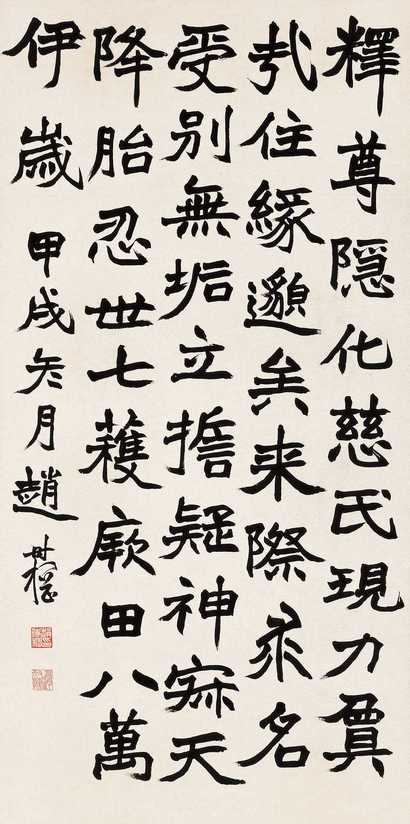 釋尊隱化慈氏現力奠
㢤住緣邈矣来際永名
受別無垢立擔疑神寂天
降胎忍世七穫厥田八萬
伊歲甲戌冬月趙